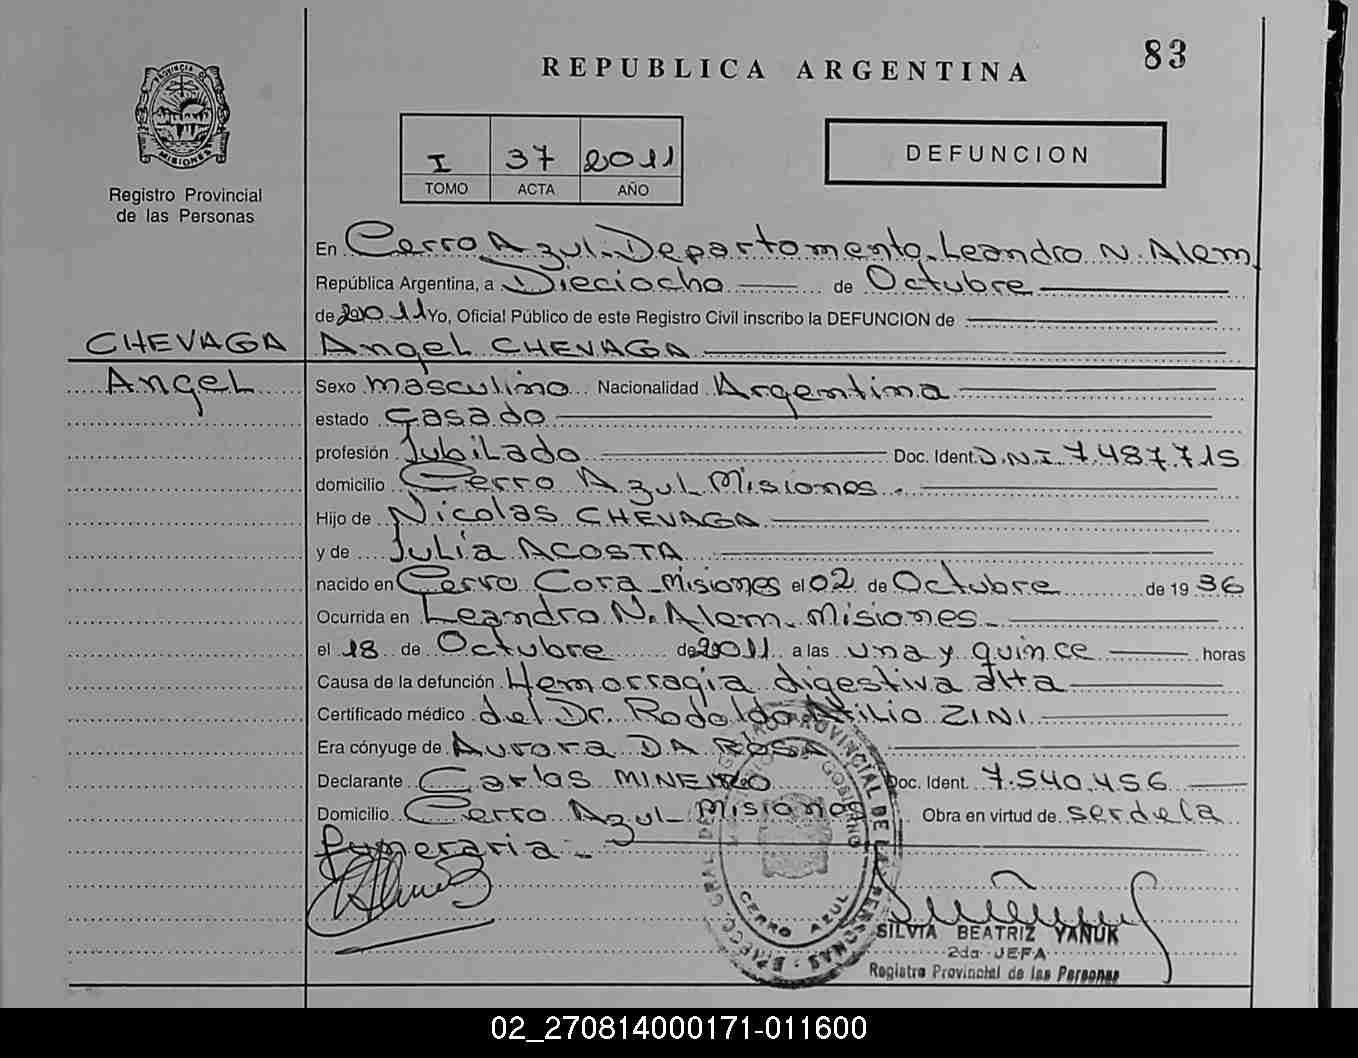 83
REPUBLICA ARGENTINA
PROVINCIA DE
MISIONES
Registro Provincial
de las Personas
I 37 2011
TOMO ACTA AÑO
DEFUNCION
En Cerro Azul. Departamento. Leandro N. Alem
República Argentina, a Dieciocho de Octubre
de 2011 Yo, Oficial Público de este Registro Civil inscribo la DEFUNCION de
CHEVAGA Angel CHEVAGA
Angel Sexo masculino Nacionalidad Argentina
estado casado
profesión Jubilado Doc. Ident. D.N.I. 7.487.715
domicilio Cerro Azul Misiones.
Hijo de Nicolas CHEVAGA
y de Julia ACOSTA
nacido en Cerro Cora - Misiones el 02 de Octubre de 1936
Ocurrida en Leandro N. Alem. Misiones -
el 18 de Octubre de 2011 a las una y quince horas
Causa de la defunción Hemorragia digestiva alta
Certificado médico del Dr. Rodoldo Atilio ZINI
Era cónyuge de Aurora DA ROSA
Declarante Carlos MINEIRO Doc. Ident. 7.540.456
Domicilio Cerro Azul Misiones Obra en virtud de ser de la
funeraria -
CERRO AZUL
SILVIA BEATRIZ YAÑUK
2da JEFA
Registro Provincial de las Personas
02_270814000171-011600